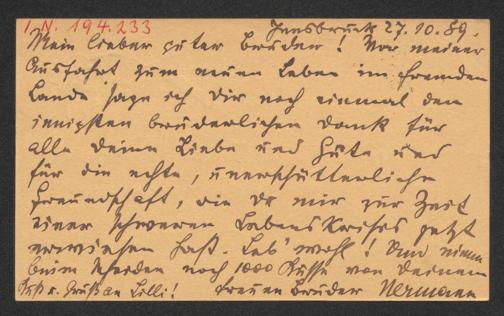 I.N. 194.233
Innsbruck 27.10.89.
Mein lieber guter Bruder! Vor meiner
Ausfahrt zum neuen Leben im fremden
Lande sage ich Dir noch einmal den
innigsten brüderlichen Dank für
alle Deine Liebe und Güte und
für die echte, unerschütterliche
Freundschaft, die Du mir zur Zeit
einer schweren Lebenskrisis jetzt
erwiesen hast. Leb' wohl! Und nimm
beim Scheiden noch 1000 Küsse von Deinem
Kuß u. Gruß an Lilli! treuen Bruder Hermann